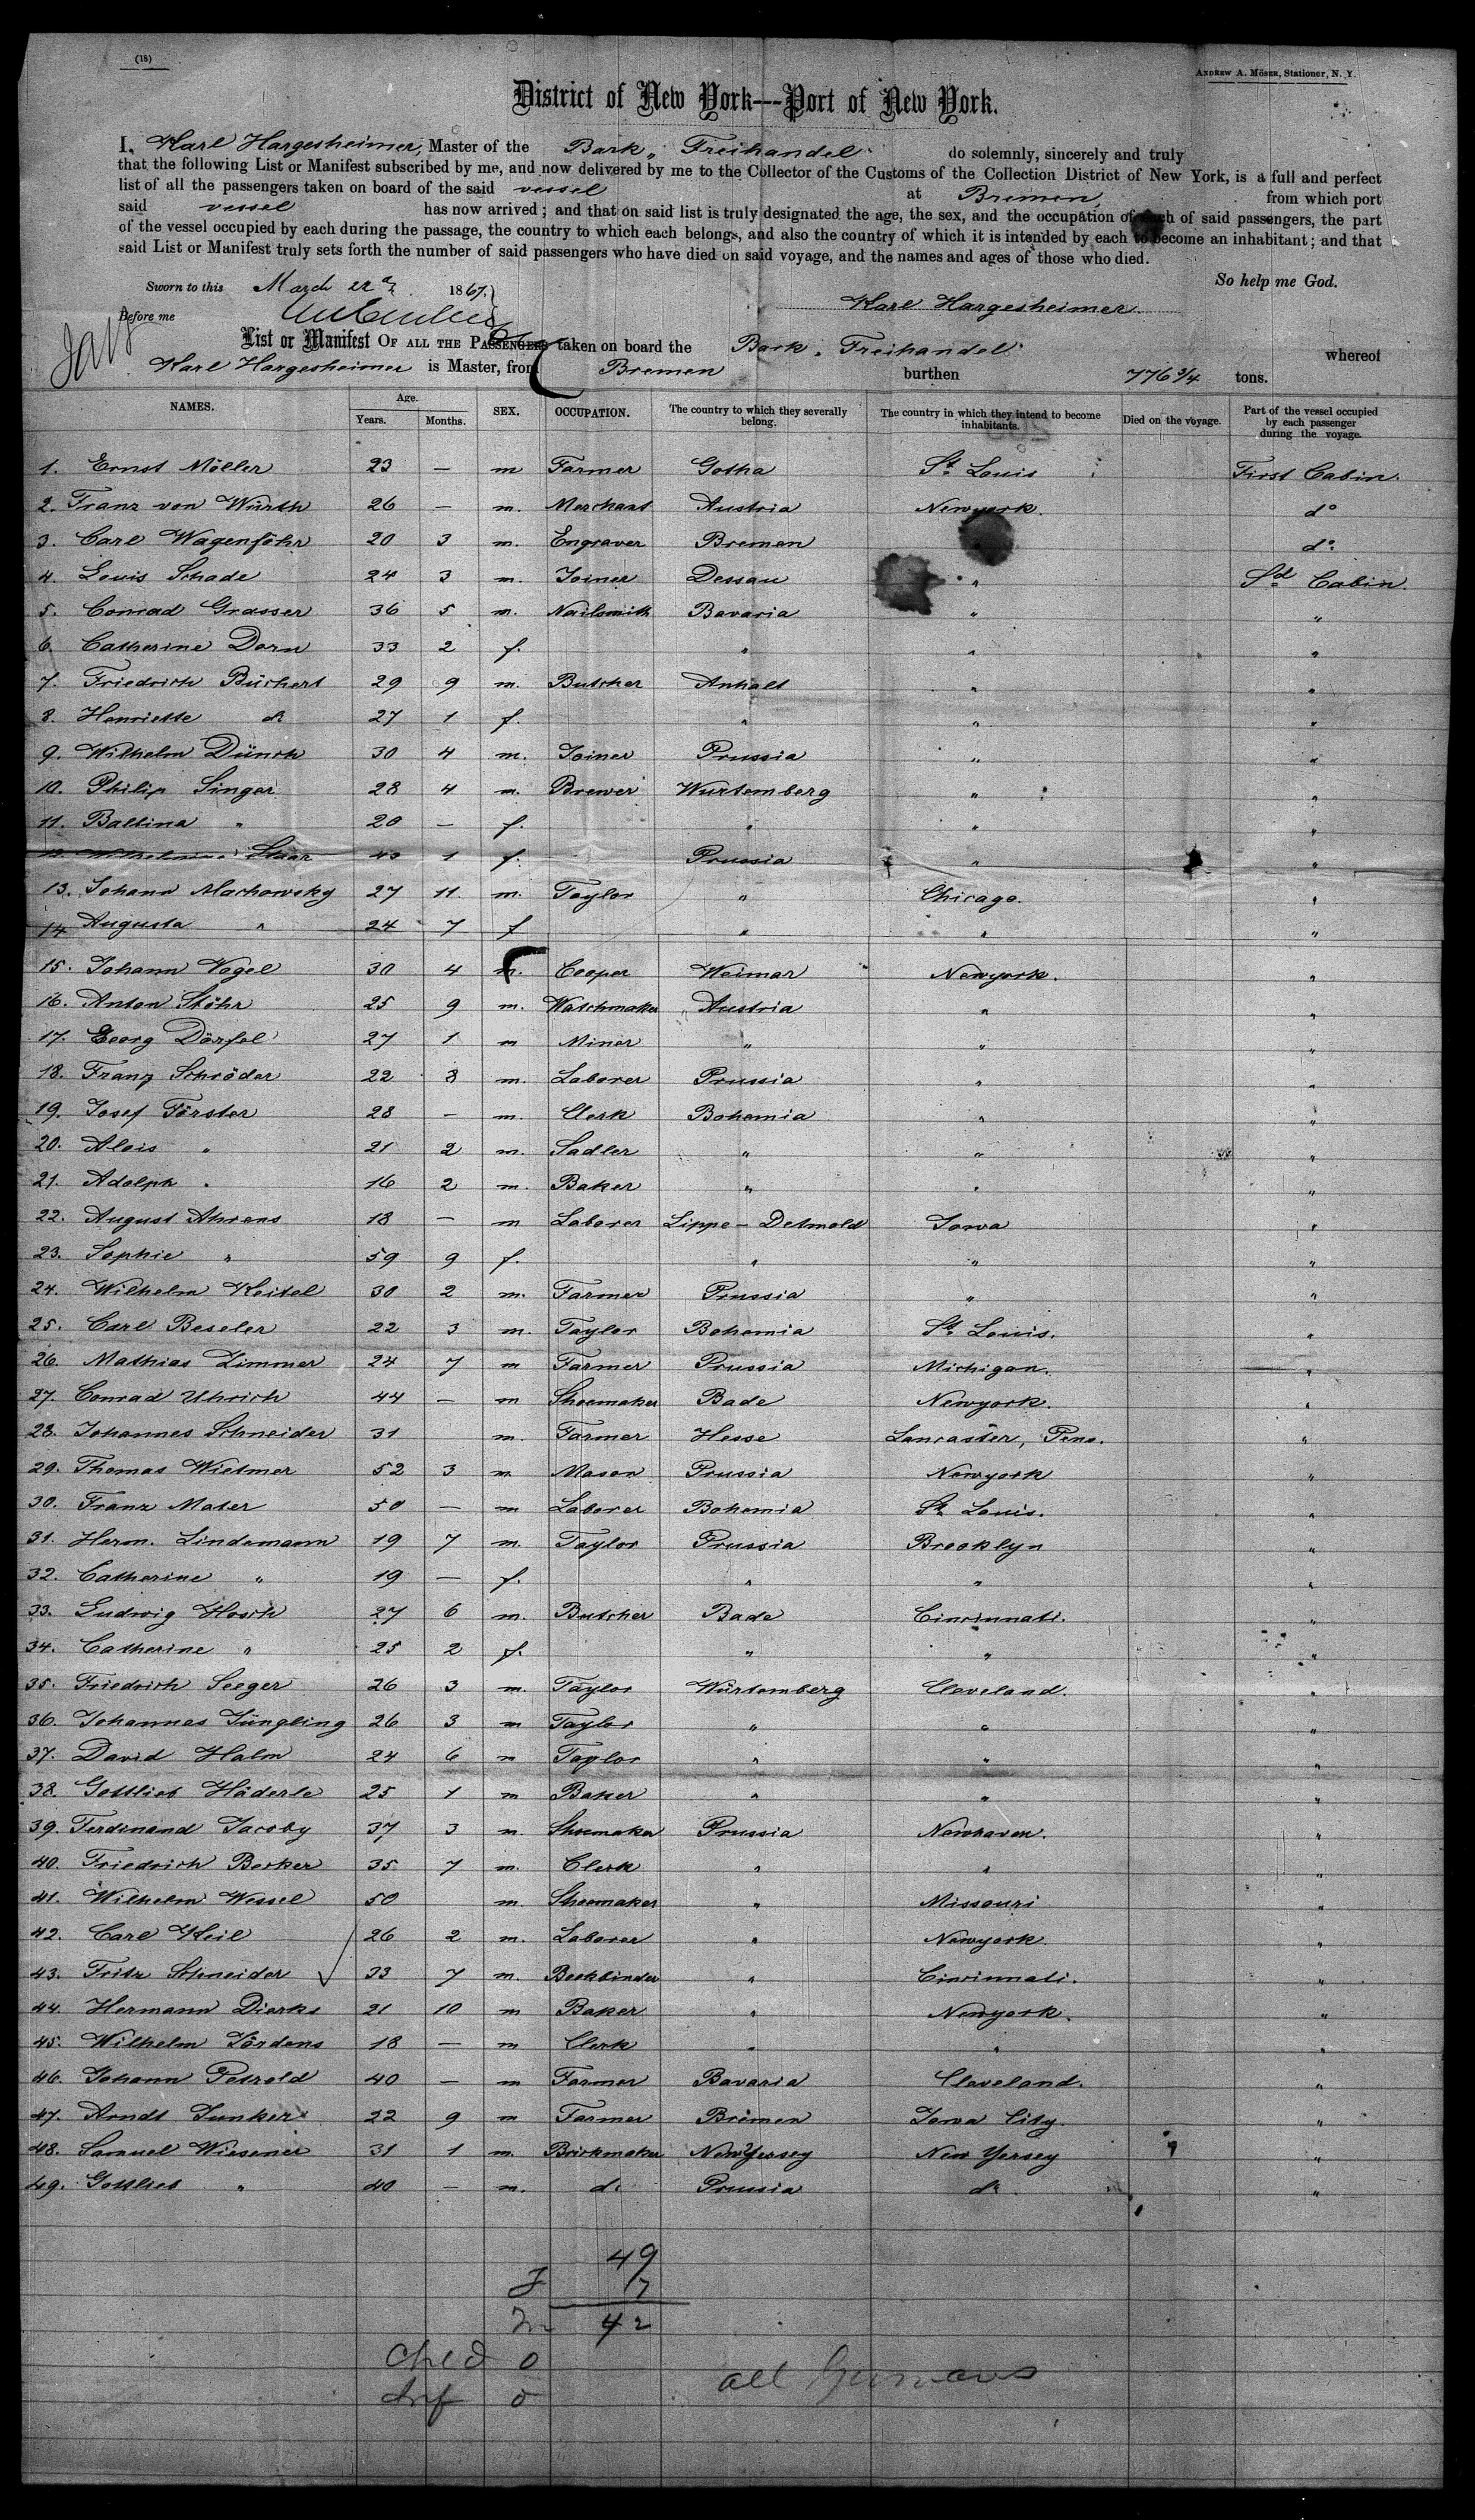 (18)
ANDREW A. MÖSER, Stationer, N. Y.
District of New York---Port of New York.
I, Karl Hargesheimer, Master of the Bark „ Freihandel " do solemnly, sincerely and truly
that the following List or Manifest subscribed by me, and now delivered by me to the Collector of the Customs of the Collection District of New York, is a full and perfect
list of all the passengers taken on board of the said vessel at Bremen, from which port
said vessel has now arrived; and that on said list is truly designated the age, the sex, and the occupation of each of said passengers, the part
of the vessel occupied by each during the passage, the country to which each belongs, and also the country of which it is intended by each to become an inhabitant; and that
said List or Manifest truly sets forth the number of said passengers who have died on said voyage, and the names and ages of those who died.
So help me God.
Sworn to this March 22d 1867.
Karl Hargesheimer.
Before me
List or Manifest OF ALL THE PASSENGERS taken on board the Bark „ Freihandel " whereof
Karl Hargesheimer is Master, from Bremen burthen 776 3/4 tons.
NAMES. Age. Years. Months. SEX. OCCUPATION. The country to which they severally belong. The country in which they intend to become inhabitants. Died on the voyage. Part of the vessel occupied by each passenger during the voyage.
1. Ernst Möller 23 — m Farmer Gotha St. Louis First Cabin.
2. Franz von Würth 26 — m. Merchant Austria Newyork. do
3. Carl Wagenföhr 20 3 m. Engraver Bremen do.
4. Louis Schade 24 3 m. Joiner Dessau " Sd. Cabin.
5. Conrad Grasser 36 5 m. Nailsmith Bavaria " "
6. Catherine Dorn 33 2 f. " " "
7. Friedrich Büchert 29 9 m. Butcher Anhalt " "
8. Henriette do 27 1 f. " " "
9. Wilhelm Dünch 30 4 m. Joiner Prussia " "
10. Philip Singer 28 4 m. Brewer Wurtemberg " "
11. Baltina " 20 — f. " " "
12. Wilhelmine Staar 43 1 f. Prussia " "
13. Johann Machowsky 27 11 m. Taylor " Chicago. "
14 Augusta " 24 7 f " " "
15. Johann Vogel 30 4 m. Cooper Weimar Newyork. "
16. Anton Stöhr 25 9 m. Watchmaker Austria " "
17. Georg Dörfel 27 1 m Miner " " "
18. Franz Schröder 22 8 m. Laborer Prussia " "
19. Josef Förster 28 — m. Clerk Bohemia " "
20. Alois " 21 2 m. Sadler " " "
21. Adolph " 16 2 m. Baker " " "
22. August Ahrens 18 — m Laborer Lippe - Detmold Iowa "
23. Sophie " 59 9 f. " " "
24. Wilhelm Keitel 30 2 m. Farmer Prussia " "
25. Carl Beseler 22 3 m. Taylor Bohemia St. Louis. "
26. Mathias Zimmer 24 7 m Farmer Prussia Michigan. "
27. Conrad Uhrich 44 — m Shoemaker Bade Newyork. "
28. Johannes Schneider 31 m. Farmer Hesse Lancaster, Penn. "
29. Thomas Wietmer 52 3 m. Mason Prussia Newyork "
30. Franz Mater 50 — m Laborer Bohemia St. Louis. "
31. Herm. Lindemann 19 7 m. Taylor Prussia Brooklyn "
32. Catherine " 19 — f. " " "
33. Ludwig Hosch 27 6 m. Butcher Bade Cincinnati. "
34. Catherine " 25 2 f. " " "
35. Friedrich Seeger 26 3 m. Taylor Würtemberg Cleveland. "
36. Johannes Jüngling 26 3 m Taylor " " "
37. David Halm 24 6 m Taylor " " "
38. Gottlieb Häderle 25 1 m Baker " " "
39. Ferdinand Jacoby 37 3 m. Shoemaker Prussia Newhaven. "
40. Friedrich Becker 35 7 m. Clerk " " "
41. Wilhelm Wessel 50 m. Shoemaker " Missouri "
42. Carl Keil 26 2 m. Laborer " Newyork. "
43. Fritz Schneider 33 7 m. Bookbinder " Cincinnati. "
44. Hermann Dierks 21 10 m Baker " Newyork. "
45. Wilhelm Jördens 18 — m Clerk " " "
46. Johann Petzold 40 — m Farmer Bavaria Cleveland. "
47. Arndt Junker 22 9 m Farmer Bremen Iowa City. "
48. Samuel Wiesener 31 1 m. Brickmaker New Yersey New Yersey "
49. Gottlieb " 40 — m. do Prussia do "
49
F 7
M 42
Chld 0
Inf 0
all Germans